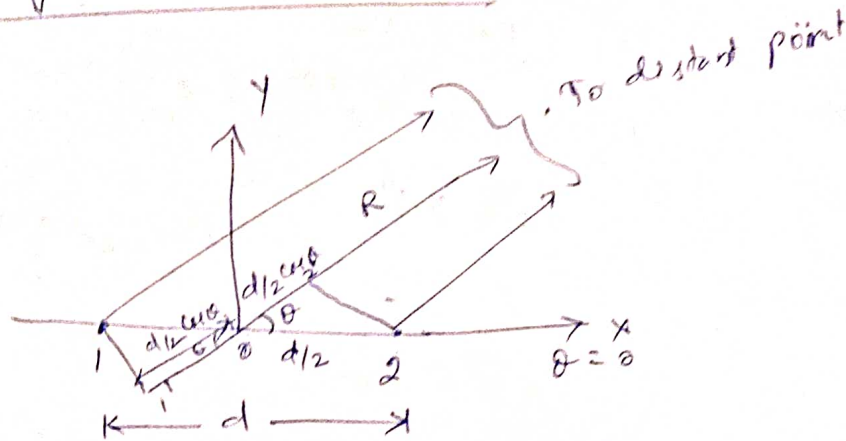 . To distant point
Y
R
d/2 cosθ
d/2 cosθ
θ
1
0
d/2
2
X
θ = 0
d